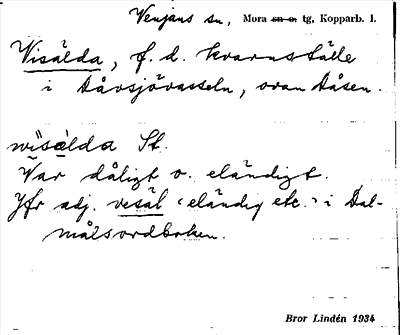 Venjans sn, Mora sn o. tg, Kopparb. l.
Visälda, f. d. kvarnställe
i Dåvsjövasseln, ovan Dåsen.
wisälda St.
Var dåligt o. eländigt.
Jfr adj. vesäl 'eländig etc.' i Dal-
målsordboken.
Bror Lindén 1934